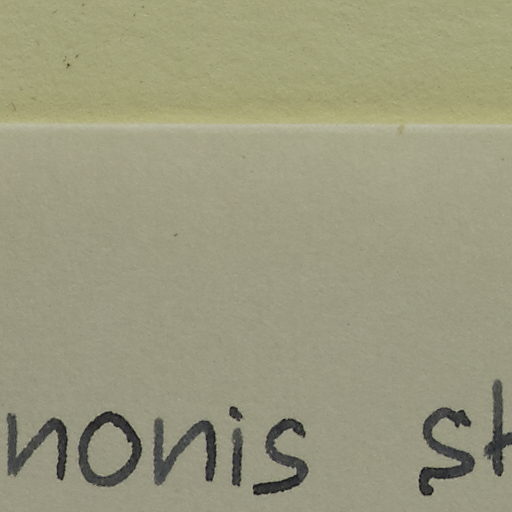 nonis st